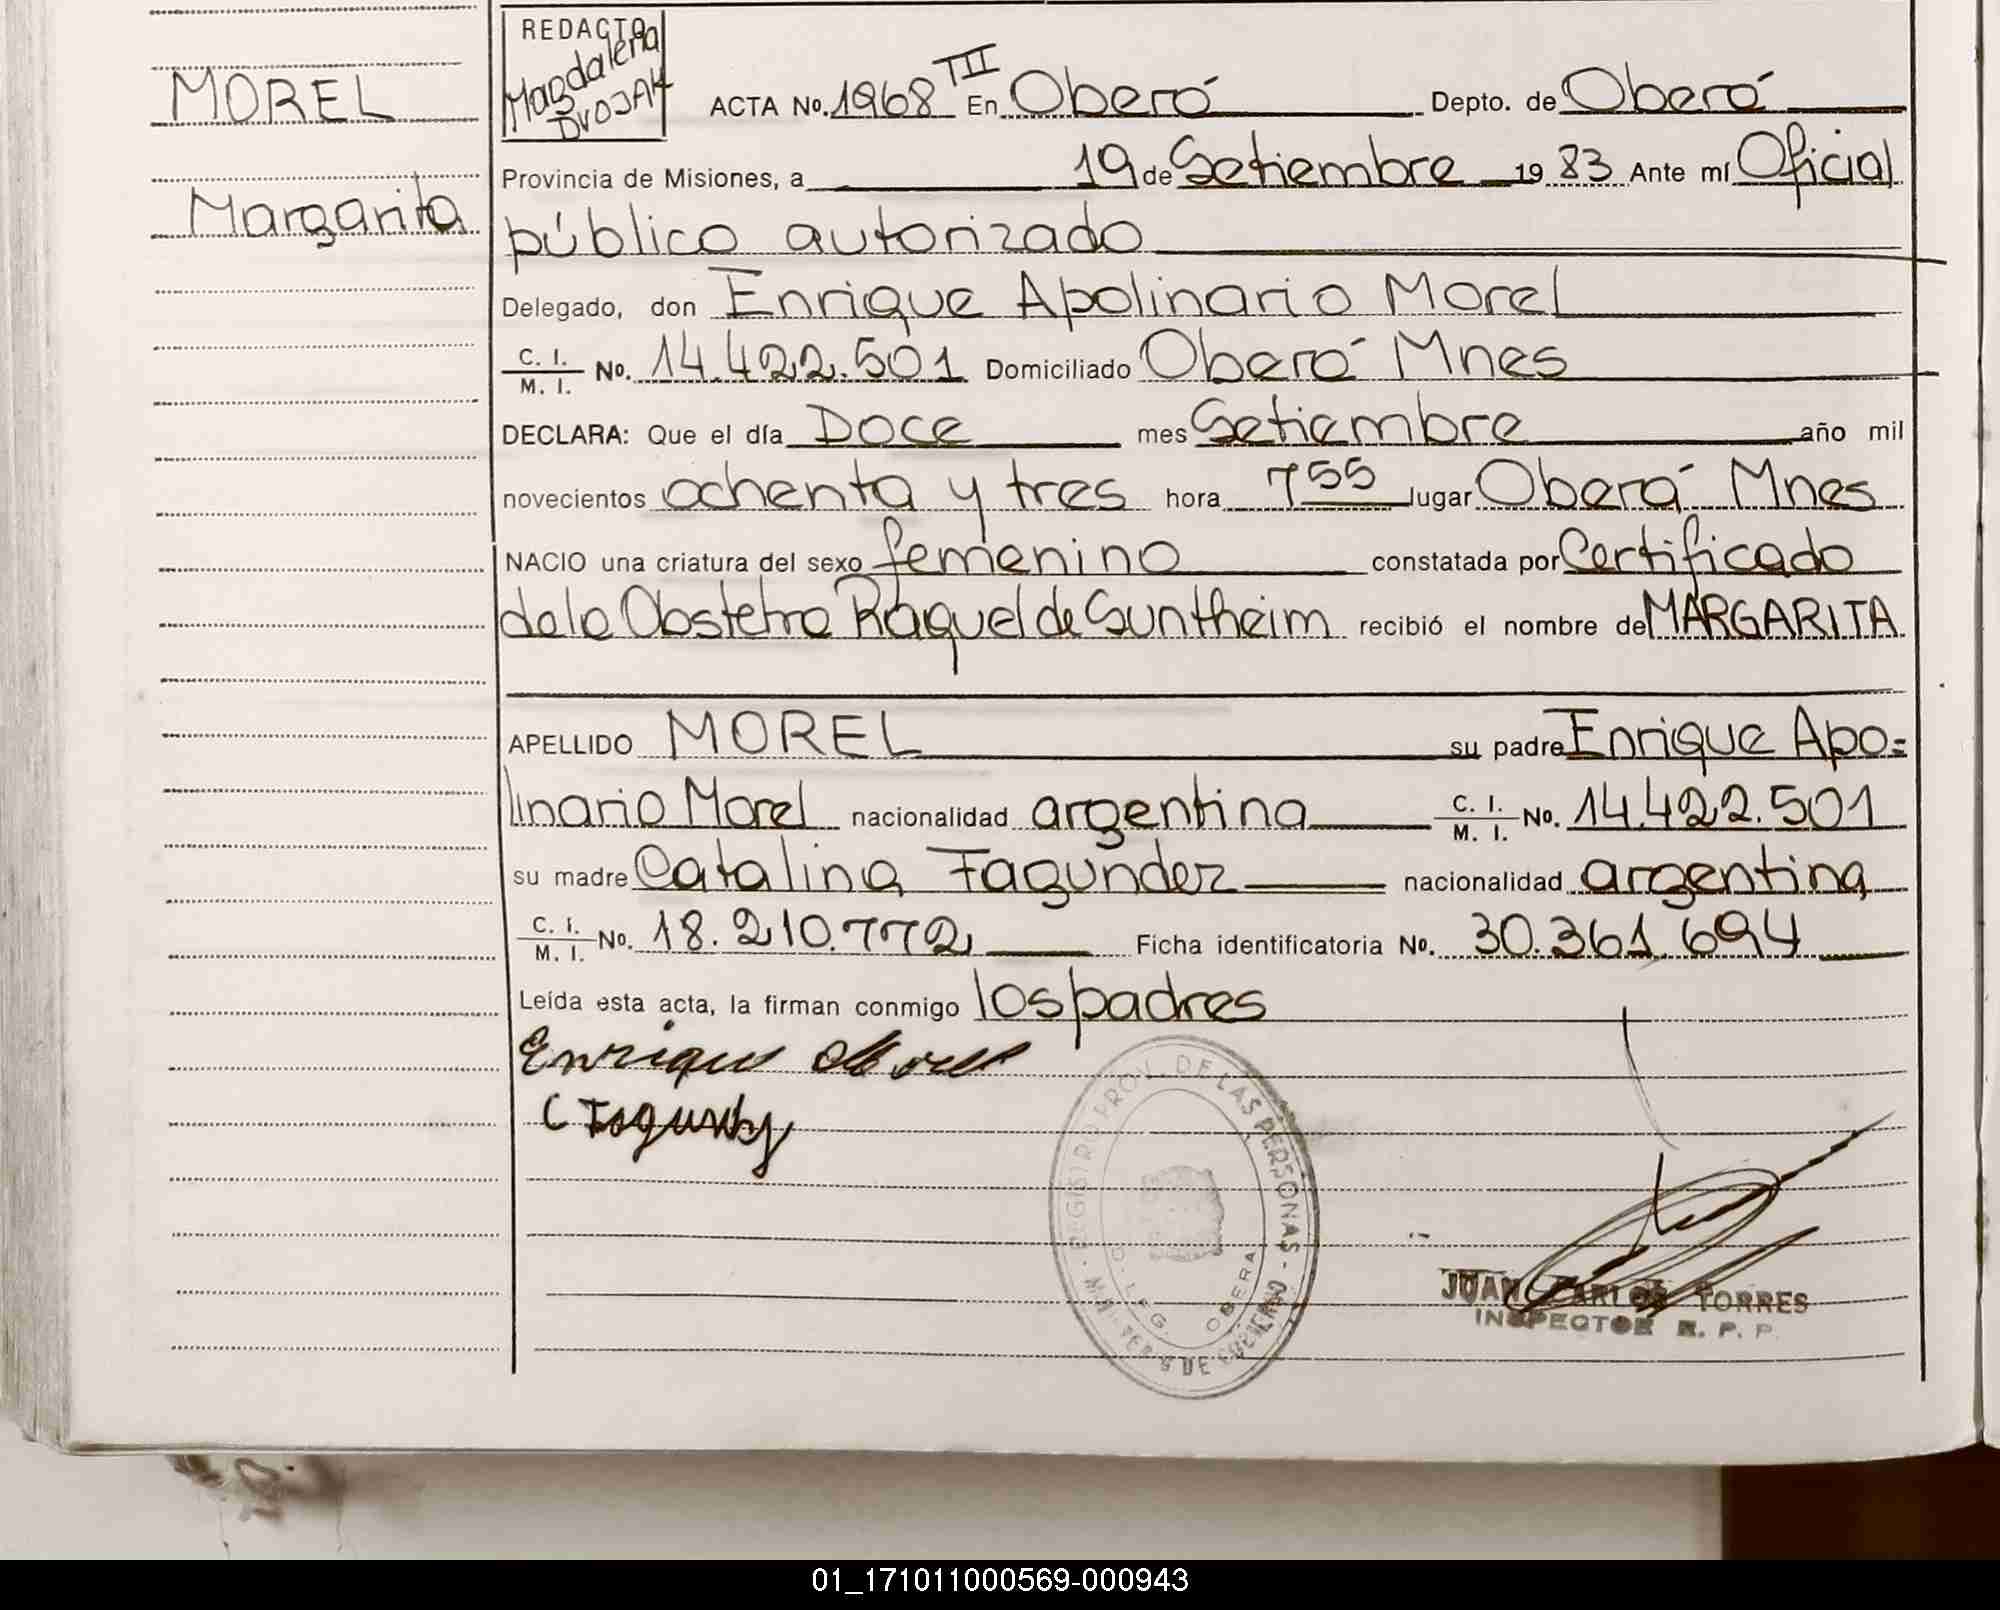 MOREL
Margarita
REDACTO
Magdalena
DVOJAK
ACTA No. 1968 TII En Oberá Depto. de Oberá
Provincia de Misiones, a 19 de Setiembre 19 83 Ante mí Oficial
público autorizado
Delegado, don Enrique Apolinario Morel
C. I. / M. I. No. 14.422.501 Domiciliado Oberá Mnes
DECLARA: Que el día Doce mes Setiembre año mil
novecientos ochenta y tres hora 7 55 lugar Oberá Mnes
NACIO una criatura del sexo femenino constatada por Certificado
de la Obstetra Raquel de Suntheim recibió el nombre de MARGARITA
APELLIDO MOREL su padre Enrique Apo=
linario Morel nacionalidad argentina C. I. / M. I. No. 14.422.501
su madre Catalina Fagundez nacionalidad argentina
C. I. / M. I. No. 18.210.772 Ficha identificatoria No. 30.361.694
Leída esta acta, la firman conmigo los padres
Enrique Morel
C Fagundez
REGISTRO PROV. DE LAS PERSONAS
DELEG. OBERA
DE GOBIERNO
JUAN CARLOS TORRES
INSPECTOR R. P. P.
01_171011000569-000943